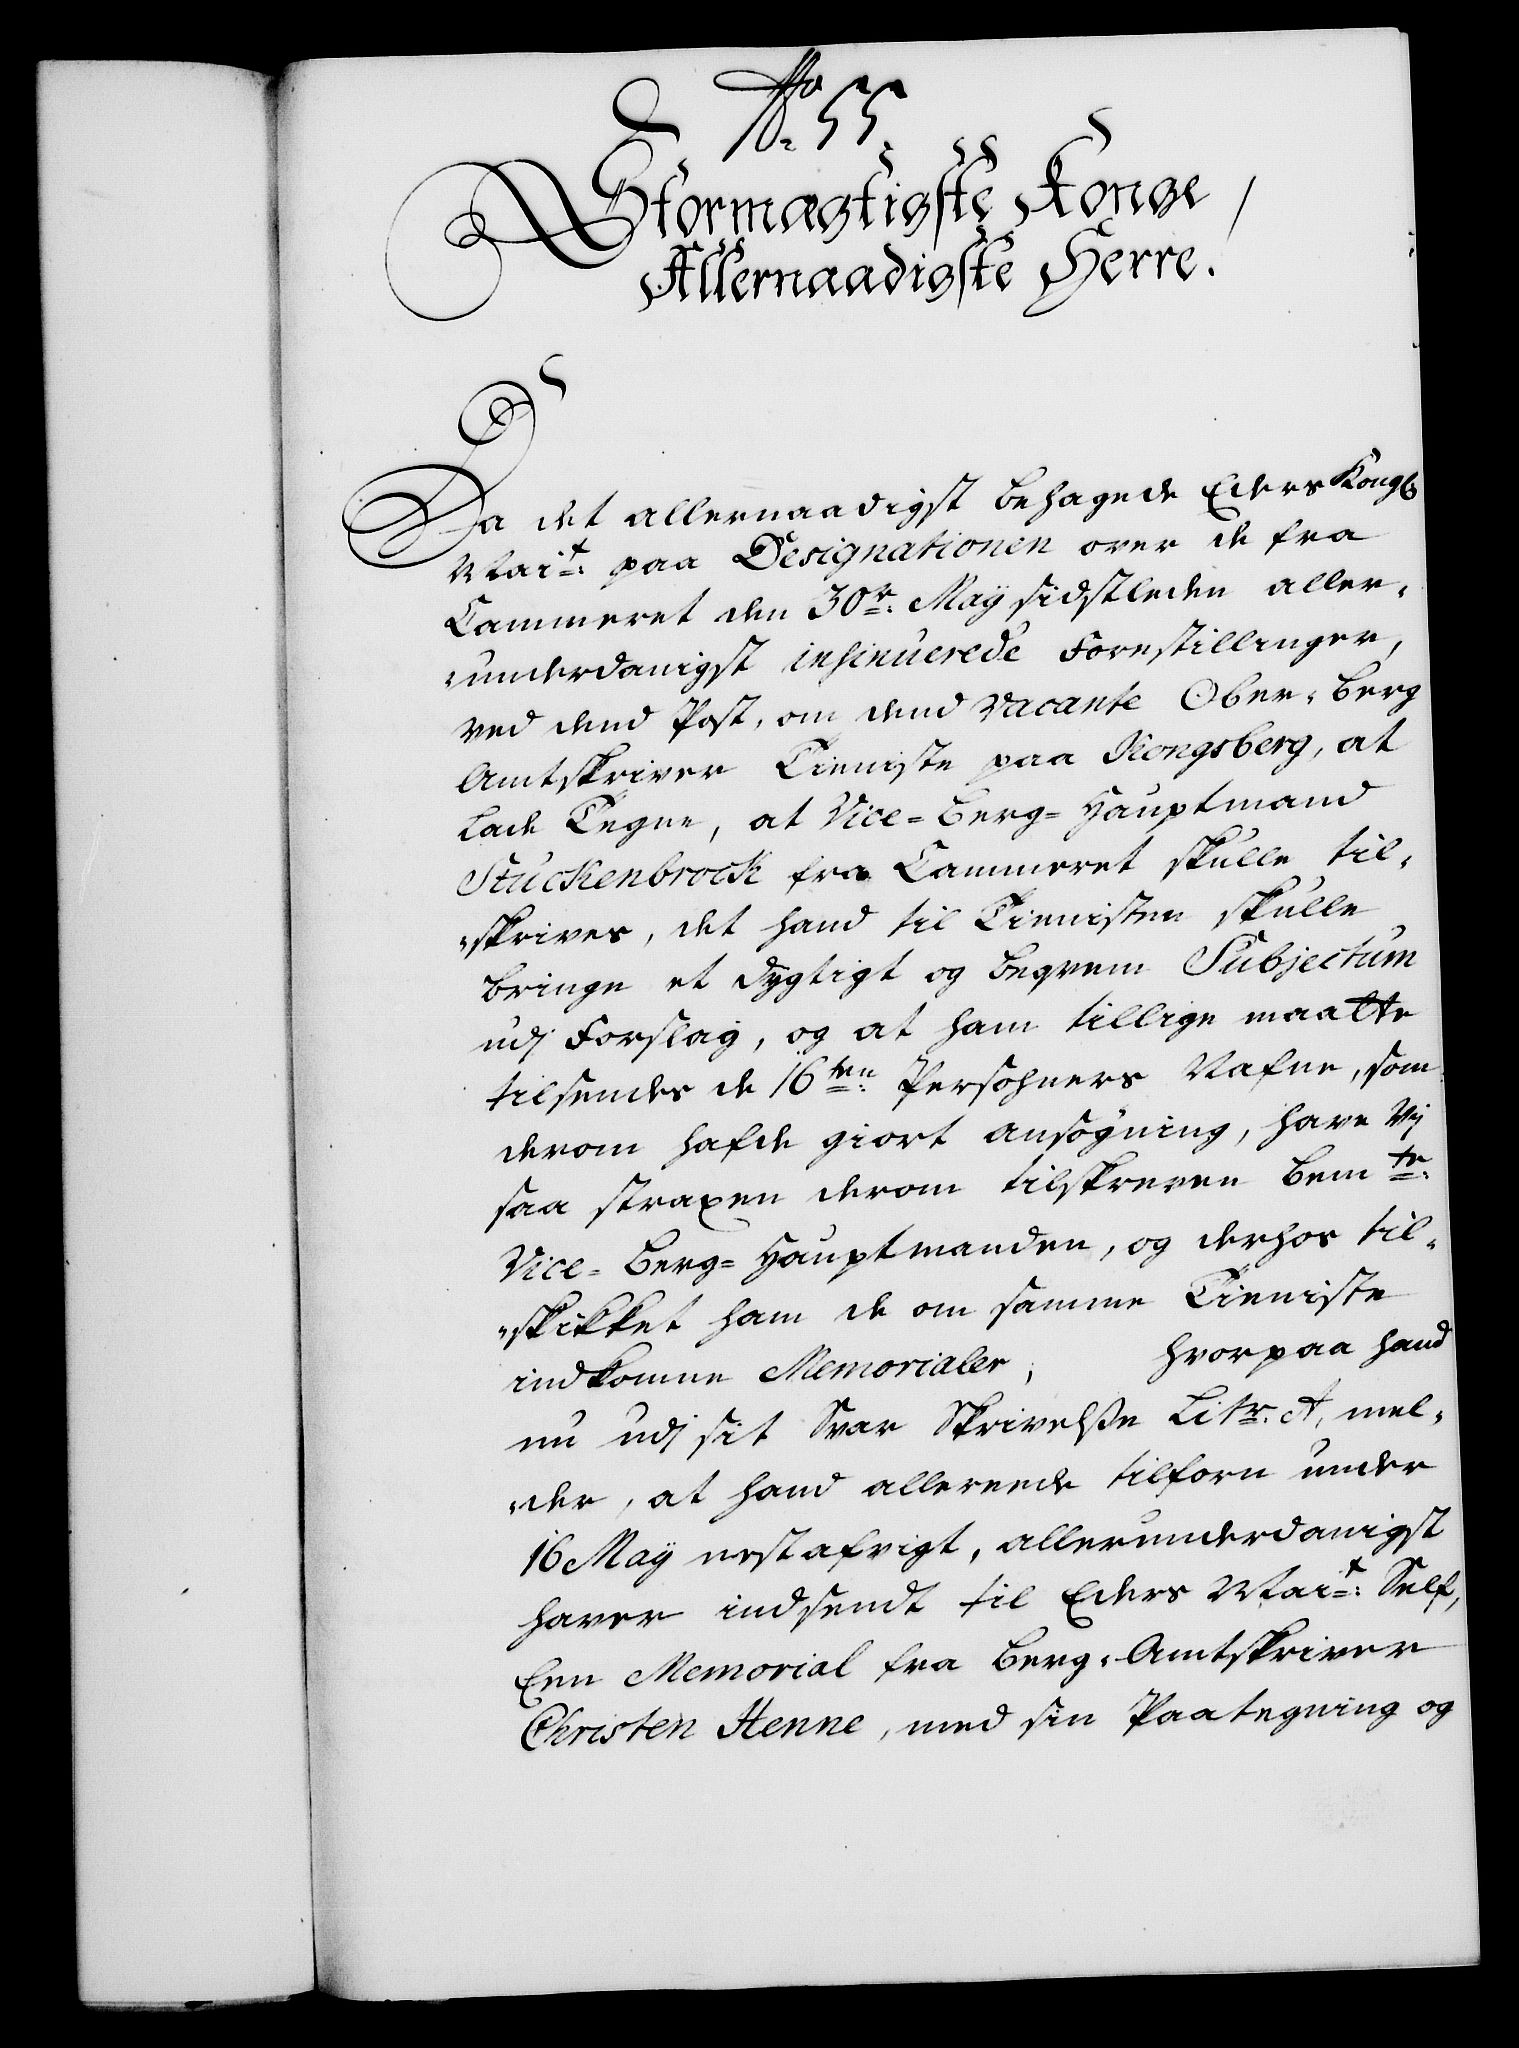 No 55.
Stormægtigste Konge /
Allernaadigste Herre.
Da det allernaadigst behagede Eders Kongl
Mait: paa Designationen over de fra
Cammeret den 30te: Maÿ sidstleden aller„
„underdanigst insinuerede Forestillinger,
ved dend Post, om dend vacante Ober-Berg
Amtskriver Tieniste paa Kongsberg, at
lade Tegne, at Vice-Berg-Hauptmand
Stuckenbrock fra Cammeret skulle til„
„skrives, det hand til Tienisten skulle
bringe et dygtigt og beqvem Subjectum
udj Forslag, og at ham tillige maatte
tilsendes de 16ten: Persohners Nafne, som
derom hafde giort ansøgning, have Vij
saa straxen derom tilskreven bemte:
Vice-Berg-Hauptmanden, og derhos til„
„skikket ham de om samme Tieniste
indkomne Memorialer, hvorpaa hand
nu udj sit Svar Skrivelsse Litr: A, mel„
„der, at hand allereede tilforn under
16 Maÿ nestafvigt, allerunderdanigst
haver indsendt til Eders Mait: Self,
Een Memorial fra Berg-Amtskriver
Christen Henne, med sin Paategning og